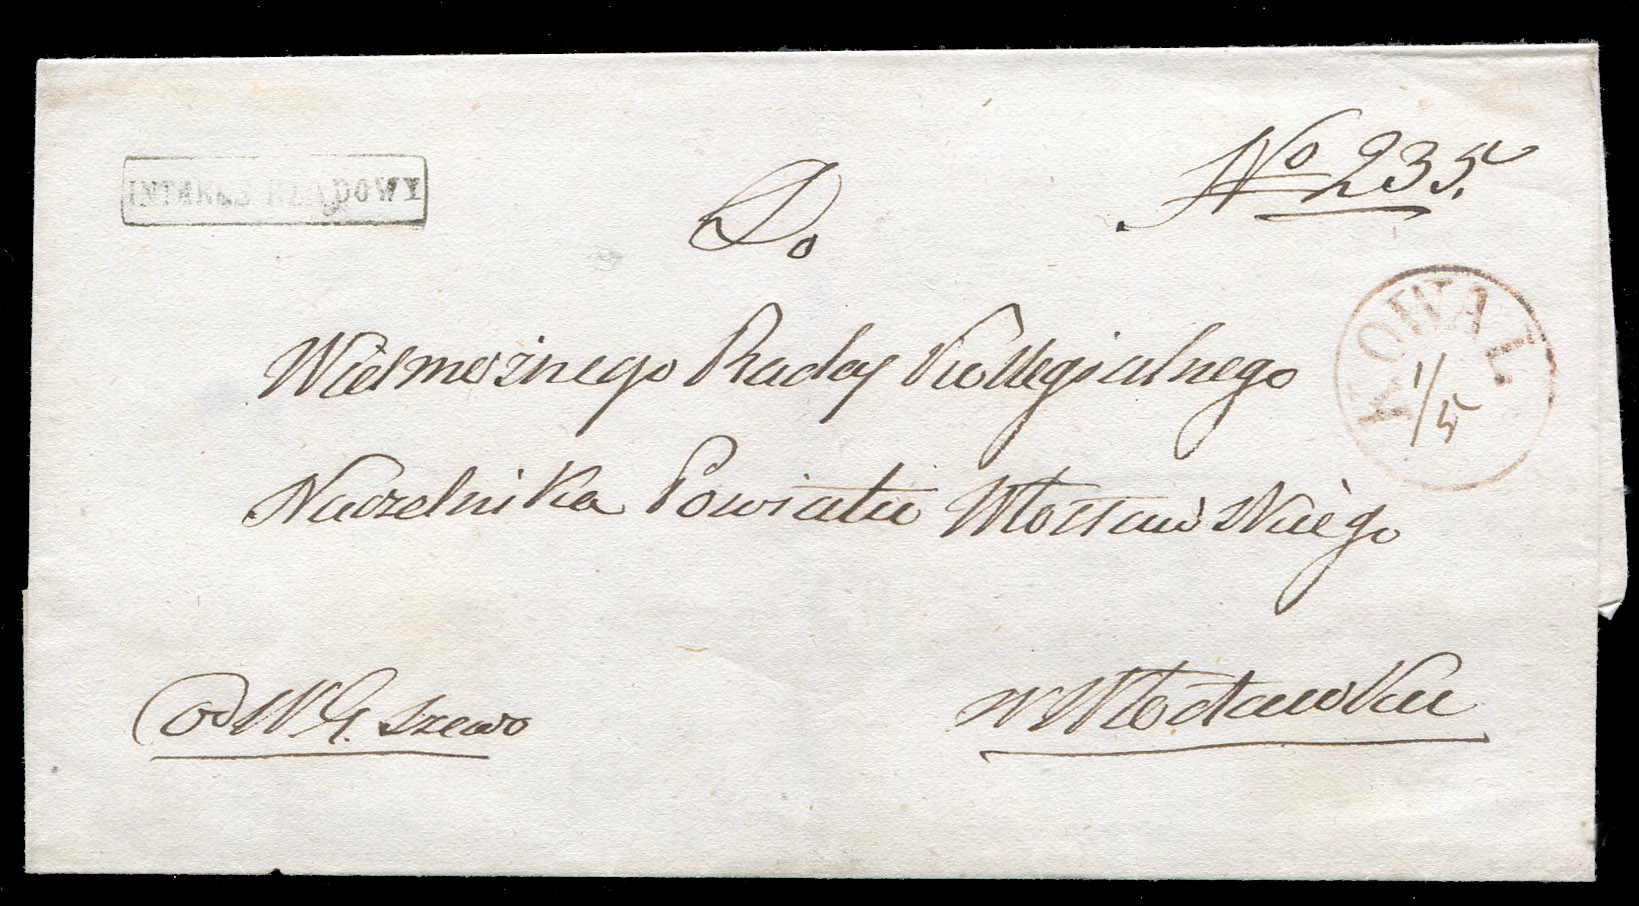 INTERES RZĄDOWY
No 235.
Do
KOWAL
1/5
Wielmożnego Radcy Kollegialnego
Naczelnika Powiatu Włocławskiego
od W G. szewo
w Włocławku